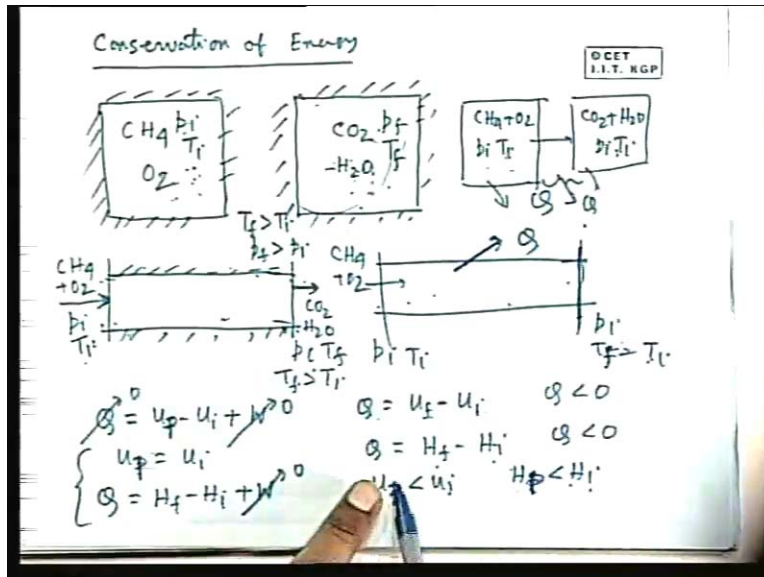 Conservation of Energy
© CET
I.I.T. KGP
CH4 pi
Ti
O2
CO2 pf
Tf
-H2O
Tf > Ti
pf > pi
CH4+O2
pi Tf
CO2+H2O
pi Ti
Q Q
CH4
+O2
pi
Ti
CO2
H2O
pi Tf
Tf > Ti
CH4
+O2
Q
pi Ti
pi
Tf = Ti
Q 0 = Up - Ui + W 0
Up = Ui
Q = Hf - Hi + W 0
Q = Uf - Ui Q < 0
Q = Hf - Hi Q < 0
< Ui Hp < Hi